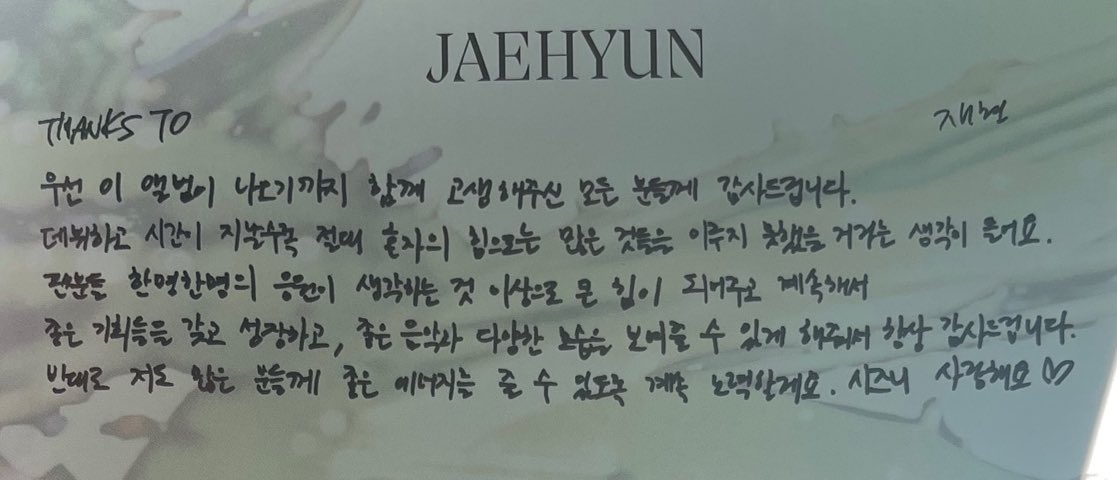 JAEHYUN
THANKS TO 재현
우선 이 앨범이 나오기까지 함께 고생해주신 모든 분들께 감사드립니다.
데뷔하고 시간이 지날수록 절대 혼자의 힘으로는 많은 것들을 이루지 못했을 거라는 생각이 들어요.
팬분들 한명한명의 응원이 생각하는 것 이상으로 큰 힘이 되어주고 계속해서
좋은 기회들을 갖고 성장하고, 좋은 음악과 다양한 모습을 보여줄 수 있게 해줘서 항상 감사드립니다.
반대로 저도 많은 분들께 좋은 에너지를 줄 수 있도록 계속 노력할게요. 시즈니 사랑해요♡